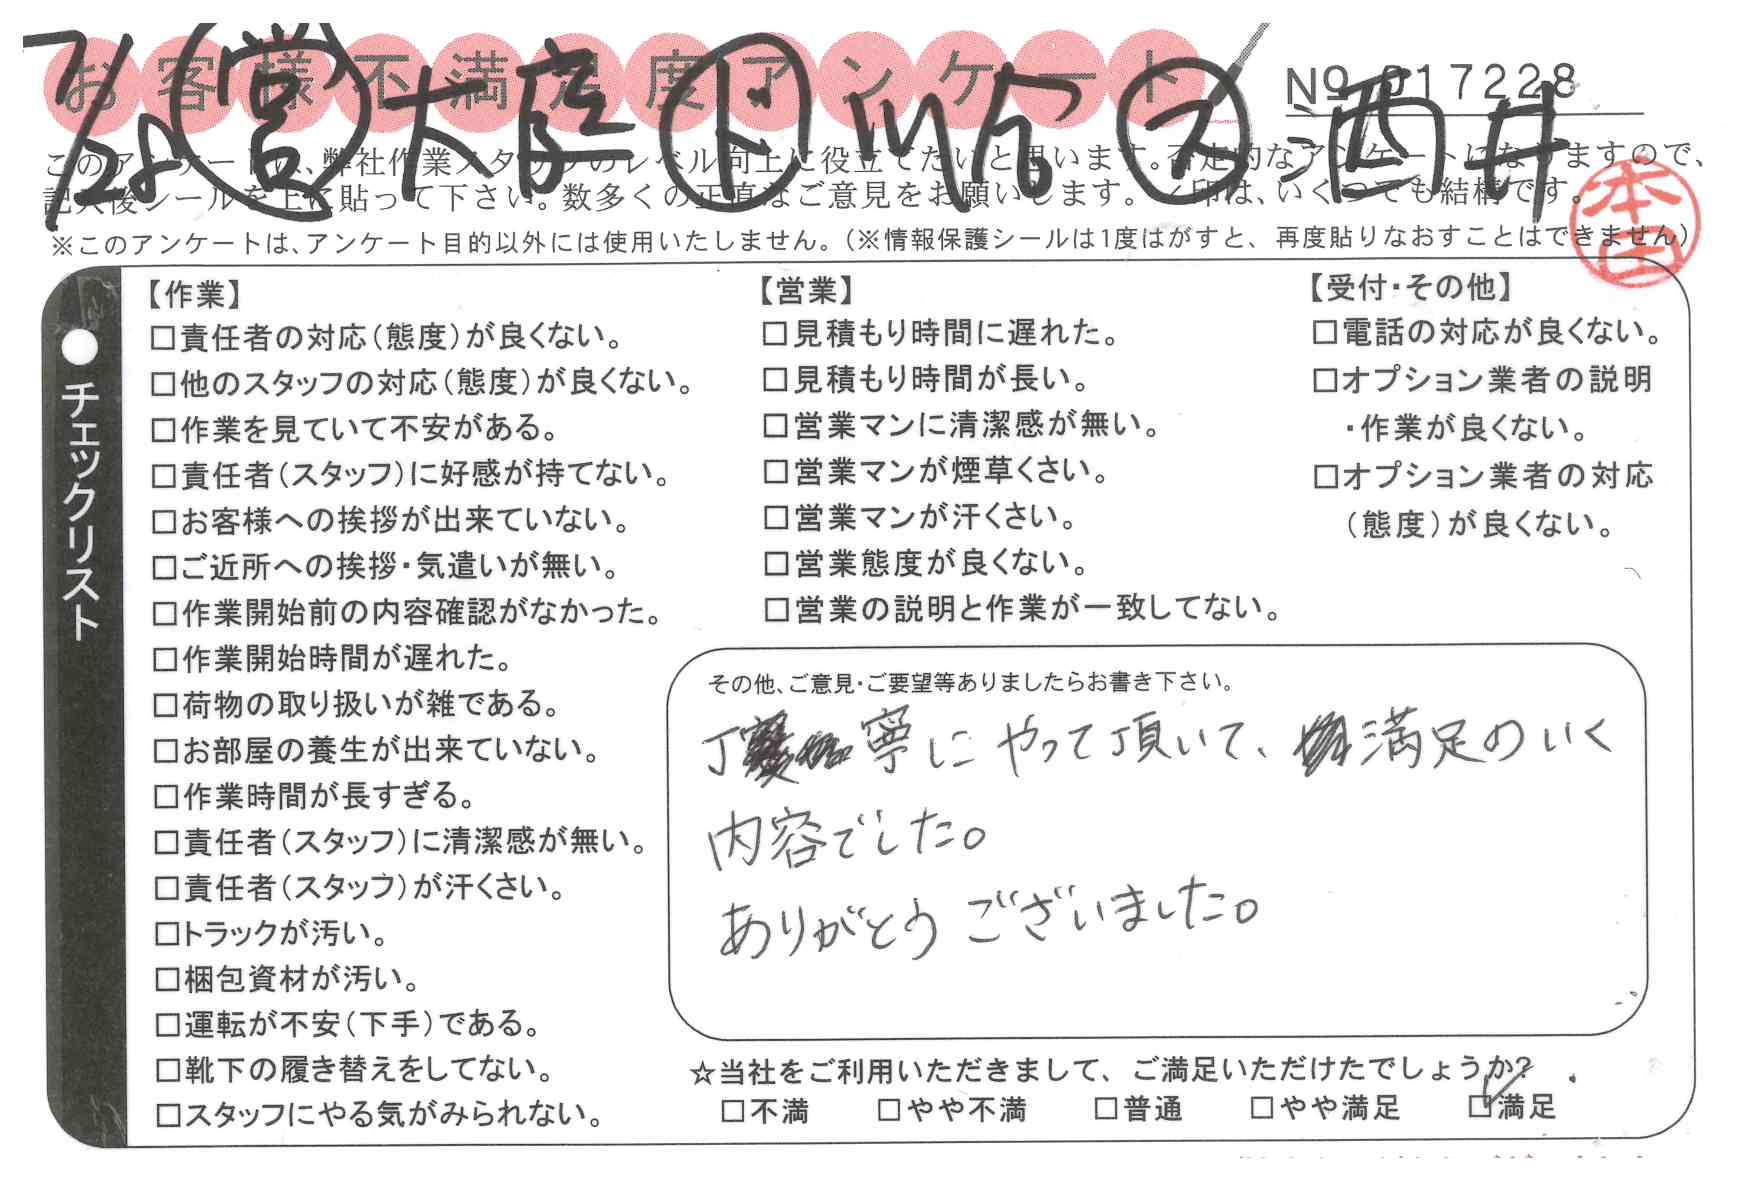 お客様不満足度アンケート
No 017228
7/28 営 大庭 ド ス 酒井
このアンケートは、弊社作業スタッフのレベル向上に役立てたいと思います。否定的なアンケートになりますので、
記入後シールを上に貼って下さい。数多くの正直なご意見をお願いします。✓印は、いくつでも結構です。
※このアンケートは、アンケート目的以外には使用いたしません。（※情報保護シールは1度はがすと、再度貼りなおすことはできません）
本田
●チェックリスト
【作業】
□責任者の対応（態度）が良くない。
□他のスタッフの対応（態度）が良くない。
□作業を見ていて不安がある。
□責任者（スタッフ）に好感が持てない。
□お客様への挨拶が出来ていない。
□ご近所への挨拶・気遣いが無い。
□作業開始前の内容確認がなかった。
□作業開始時間が遅れた。
□荷物の取り扱いが雑である。
□お部屋の養生が出来ていない。
□作業時間が長すぎる。
□責任者（スタッフ）に清潔感が無い。
□責任者（スタッフ）が汗くさい。
□トラックが汚い。
□梱包資材が汚い。
□運転が不安（下手）である。
□靴下の履き替えをしてない。
□スタッフにやる気がみられない。
【営業】
□見積もり時間に遅れた。
□見積もり時間が長い。
□営業マンに清潔感が無い。
□営業マンが煙草くさい。
□営業マンが汗くさい。
□営業態度が良くない。
□営業の説明と作業が一致してない。
【受付・その他】
□電話の対応が良くない。
□オプション業者の説明
・作業が良くない。
□オプション業者の対応
（態度）が良くない。
その他、ご意見・ご要望等ありましたらお書き下さい。
丁寧にやって頂いて、満足のいく
内容でした。
ありがとうございました。
☆当社をご利用いただきまして、ご満足いただけたでしょうか？
□不満 □やや不満 □普通 □やや満足 ☑満足